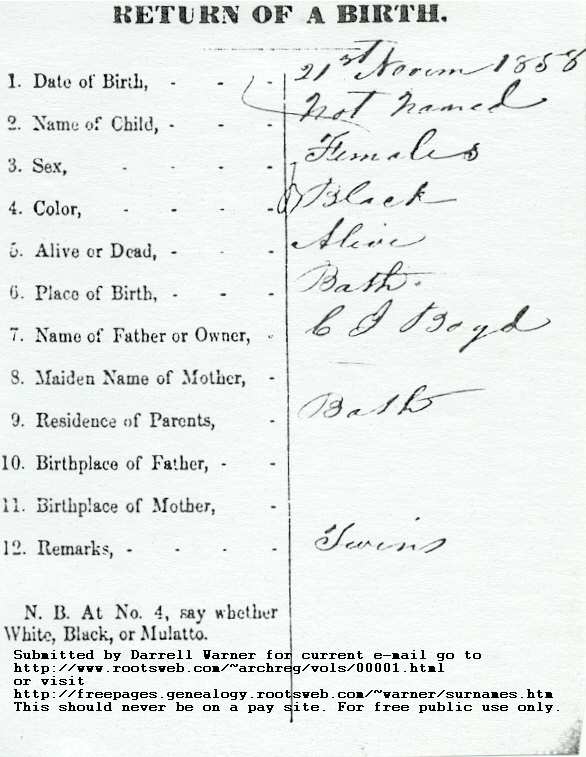 RETURN OF A BIRTH.
1. Date of Birth, - - - 21st Novem 1858
2. Name of Child, - - - Not Named
3. Sex, - - - - Females
4. Color, - - - - Black
5. Alive or Dead, - - - Alive
6. Place of Birth, - - - Bath.
7. Name of Father or Owner, - C J Boyd
8. Maiden Name of Mother, -
9. Residence of Parents, - Bath
10. Birthplace of Father, - -
11. Birthplace of Mother, -
12. Remarks, - - - - Twins
N. B. At No. 4, say whether
White, Black, or Mulatto.
Submitted by Darrell Warner for current e-mail go to
http://www.rootsweb.com/~archreg/vols/00001.html
or visit
http://freepages.genealogy.rootsweb.com/~warner/surnames.htm
This should never be on a pay site. For free public use only.